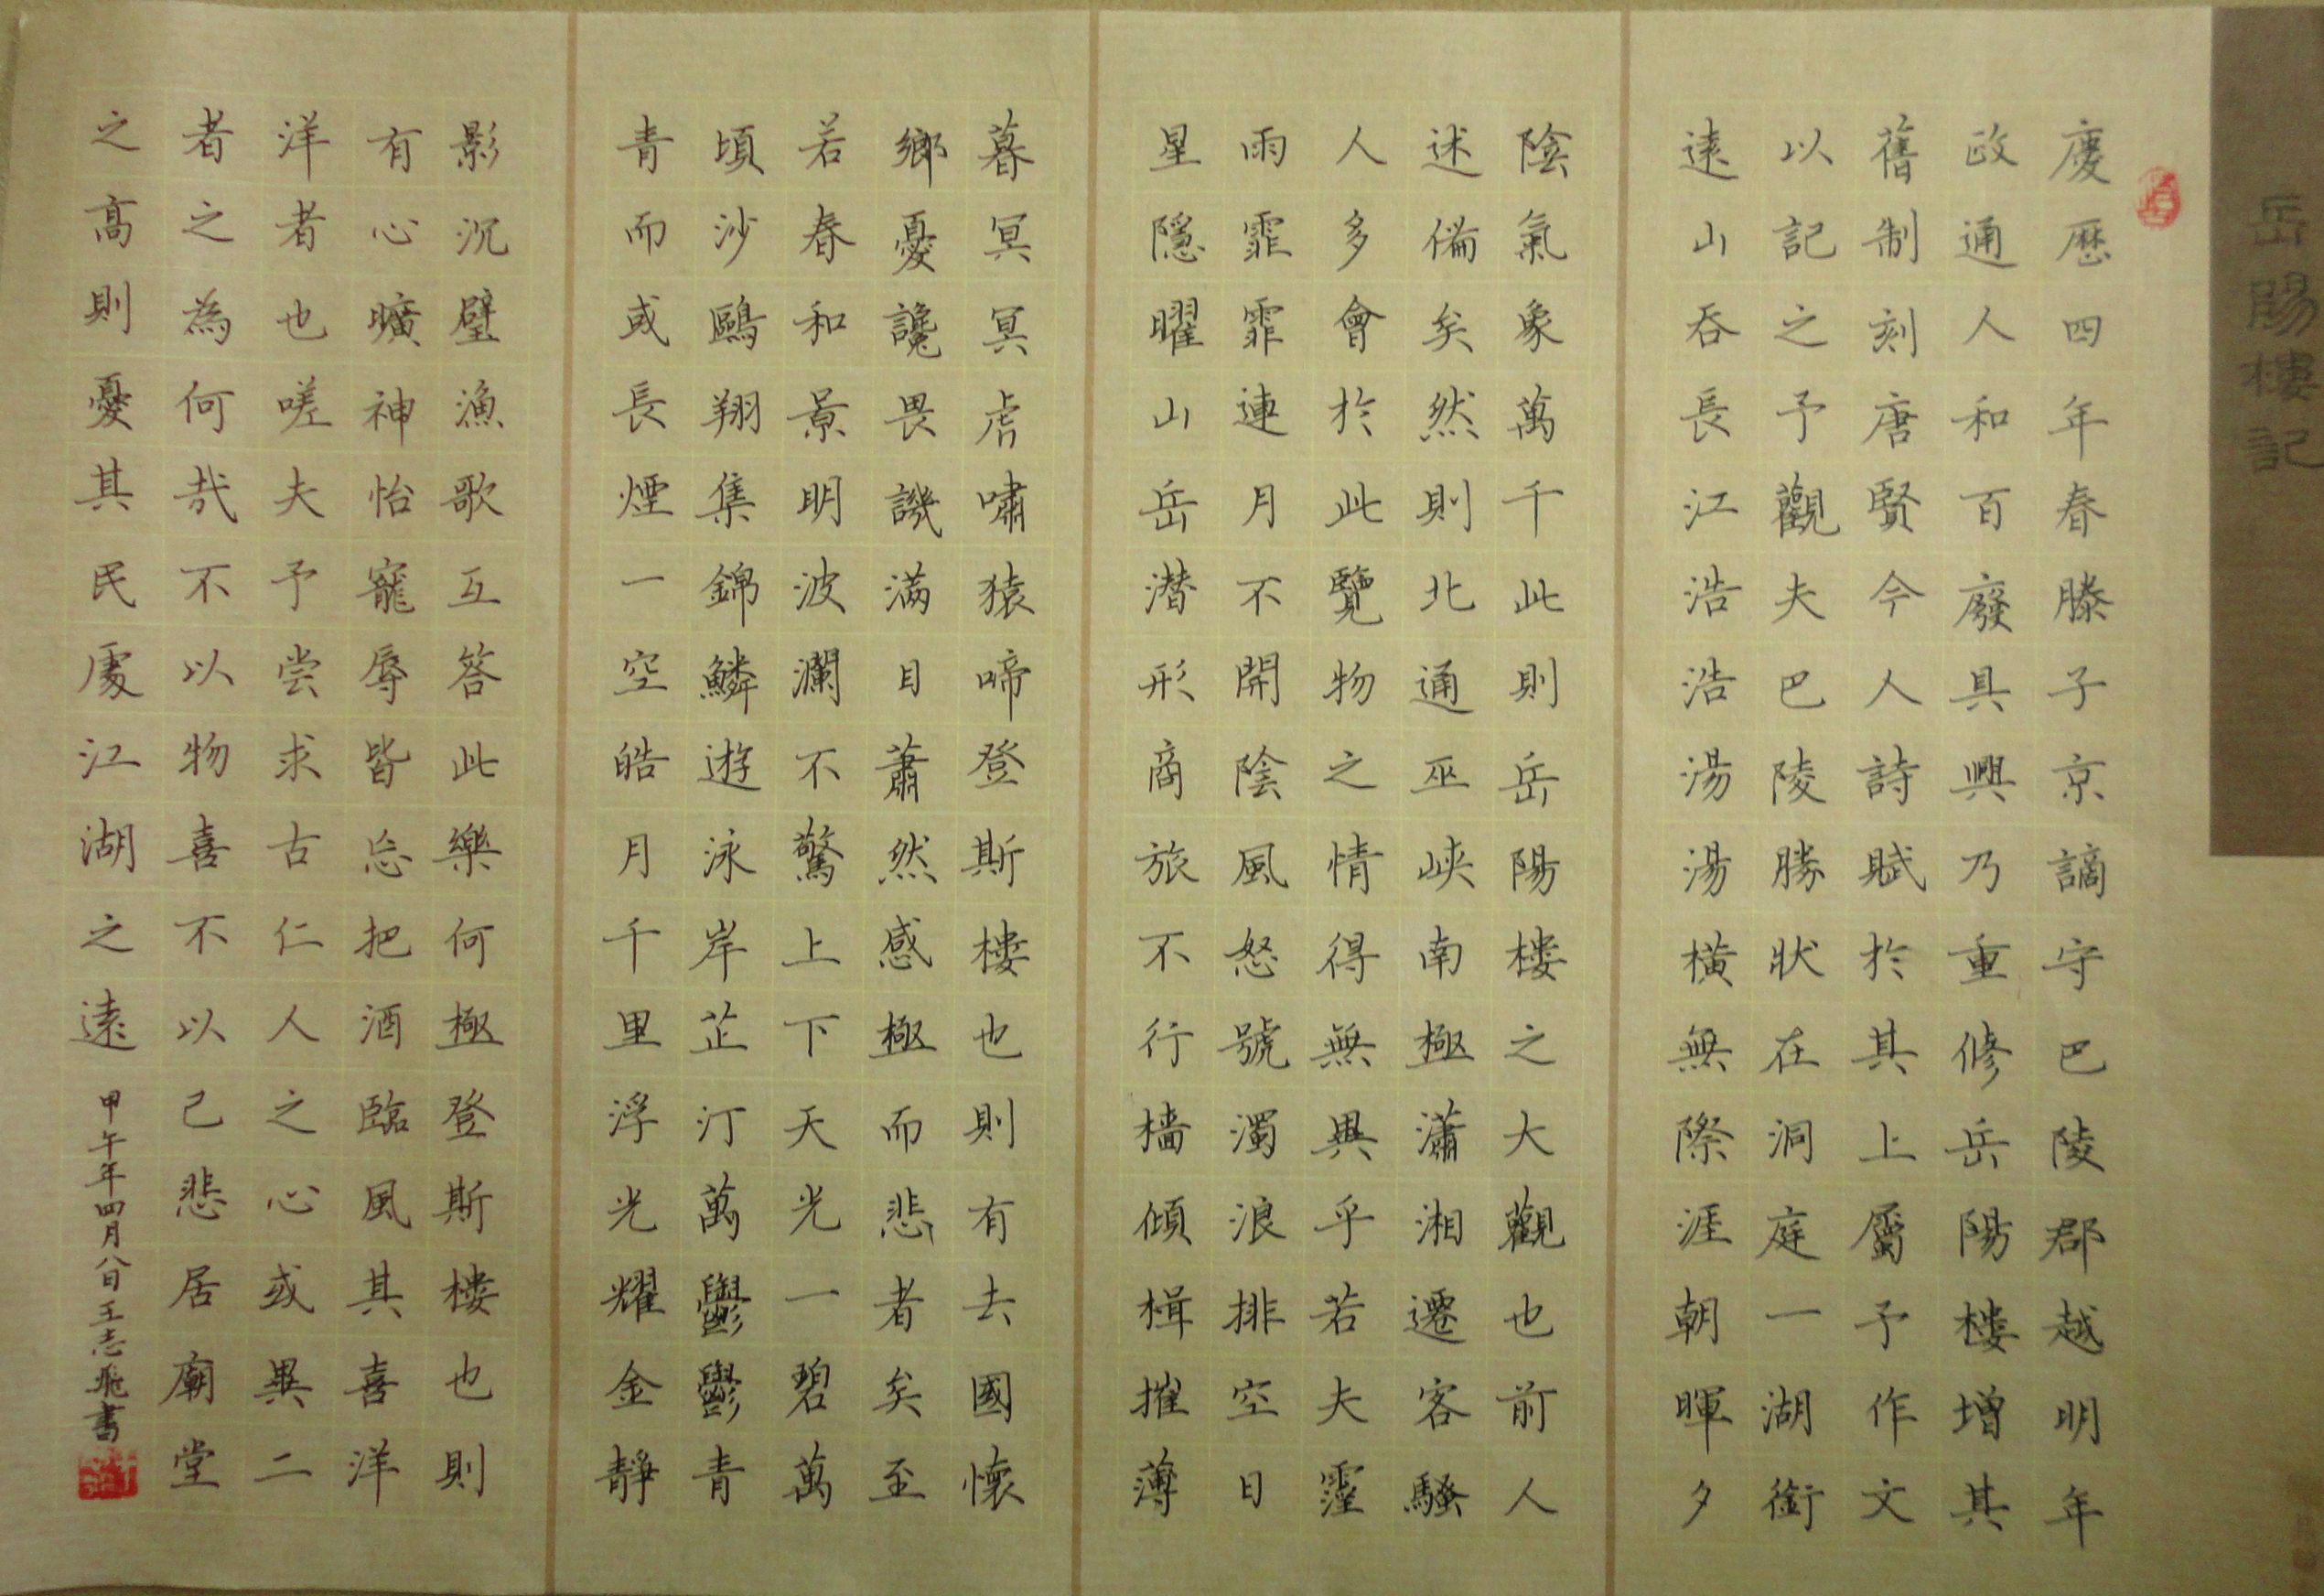 岳陽樓記
慶歷四年春滕子京謫守巴陵郡越明年
政通人和百廢具興乃重修岳陽樓增其
舊制刻唐賢今人詩賦於其上屬予作文
以記之予觀夫巴陵勝狀在洞庭一湖銜
遠山吞長江浩浩湯湯橫無際涯朝暉夕
陰氣象萬千此則岳陽樓之大觀也前人
述備矣然則北通巫峽南極瀟湘遷客騷
人多會於此覽物之情得無異乎若夫霪
雨霏霏連月不開陰風怒號濁浪排空日
星隱曜山岳潛形商旅不行檣傾楫摧薄
暮冥冥虎嘯猿啼登斯樓也則有去國懷
鄉憂讒畏譏滿目蕭然感極而悲者矣至
若春和景明波瀾不驚上下天光一碧萬
頃沙鷗翔集錦鱗遊泳岸芷汀萬鬱鬱青
青而或長煙一空皓月千里浮光耀金靜
影沉璧漁歌互答此樂何極登斯樓也則
有心曠神怡寵辱皆忘把酒臨風其喜洋
洋者也嗟夫予嘗求古仁人之心或異二
者之為何哉不以物喜不以己悲居廟堂
之高則憂其民處江湖之遠
甲午年四月八日王志飛書